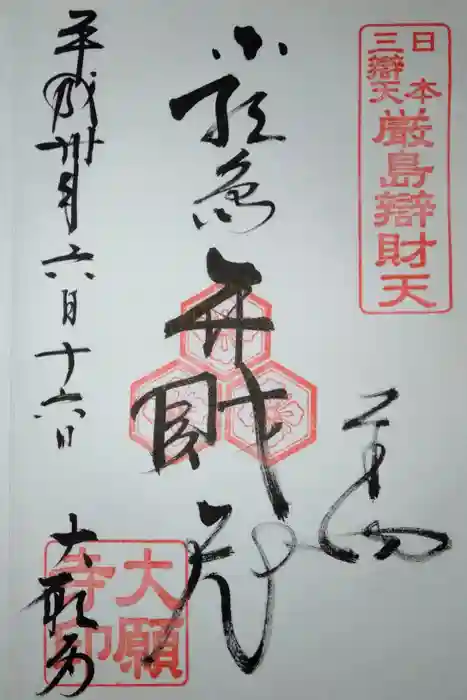 日本
三辯天
厳島辯財天
厳島弁財天
平成卅年六月十六日
大願寺
大願
寺印